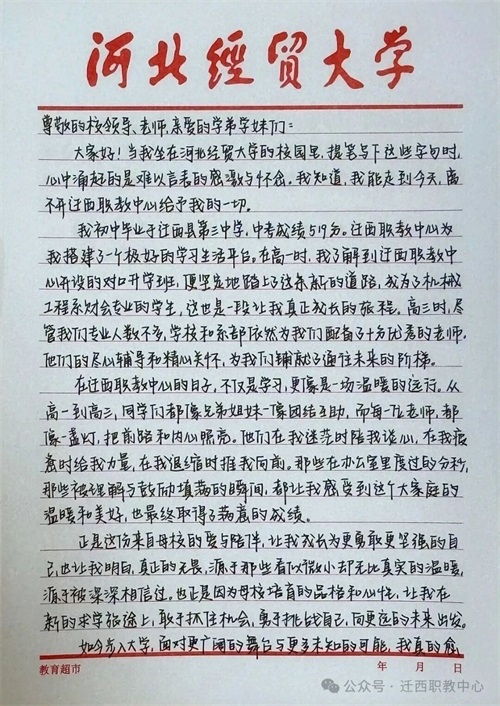 河北经贸大学
尊敬的校领导、老师,亲爱的学弟学妹们:
大家好!当我坐在河北经贸大学的校园里,提笔写下这些字句时,
心中涌起的是难以言表的感激与怀念。我知道,我能走到今天,离
不开迁西职教中心给予我的一切。
我初中毕业于迁西县第三中学,中考成绩519分。迁西职教中心为
我搭建了一个极好的学习生活平台。在高一时,我了解到迁西职教中
心开设的对口升学班,便坚定地踏上了这条新的道路,成为了机械
工程系财会专业的学生,这也是一段让我真正成长的旅程。高三时,尽
管我们专业人数不多,学校和系部依然为我们配备了十多优秀的老师。
他们的尽心辅导和精心关怀,为我们铺就了通往未来的阶梯。
在迁西职教中心的日子,不仅是学习,更像是一场温暖的远行。从
高一到高三,同学们都像兄弟姐妹一像团结互助,而每一位老师,都
像一盏灯,把前路和内心照亮。他们在我迷茫时陪我谈心,在我疲
惫时给我力量,在我退缩时推我向前。那些在办公室里度过的分秒,
那些被理解与鼓励填满的瞬间,都让我感受到这个大家庭的
温暖和美好,也最终取得了满意的成绩。
正是这份来自母校的爱与陪伴,让我成长为更勇敢更坚强的自
己,也让我明白,真正的无畏,源于那些看似微小却无比真实的温暖,
源于被深深相信过。也正是因为母校培育的品格和心性,让我在
新的求学征途上,敢于抓住机会,勇于挑战自己,向更远的未来出发。
如今步入大学,面对更广阔的舞台与更多未知的可能,我真的愈
教育超市 年 月 日
公众号·迁西职教中心